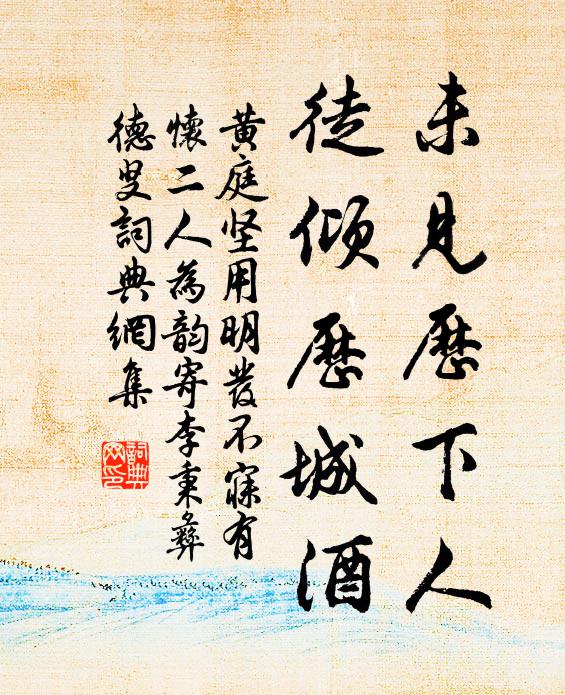 未見歷下人
徒倾歷城酒
黃庭坚用明發不寐有
懷二人為韻寄李秉彝
德叟詞典網集
詞典
网印